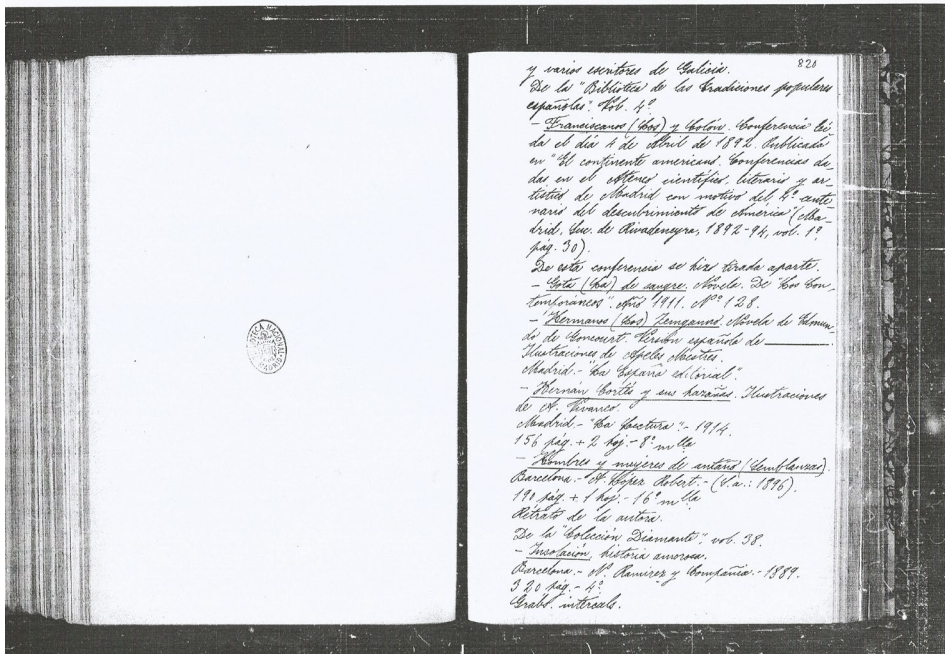 820
y varios escritores de Galicia.
De la "Biblioteca de las tradiciones populares
españolas". Vol. 4º
- Franciscanos (Los) y Colón. Conferencia leí-
da el día 4 de Abril de 1892. Publicada
en "El continente americano. Conferencias da-
das en el Ateneo científico, literario y ar-
tístico de Madrid con motivo del 4º cente-
nario del descubrimiento de América" (Ma-
drid, Suc. de Rivadeneyra, 1892-94, vol. 1º,
pág. 30).
De esta conferencia se hizo tirada aparte.
- Gota (La) de sangre. Novela. De "Los Con-
temporáneos". Año 1911. Nº 128.
- Hermanos (Los) Zemganno. Novela de Edmun-
do de Goncourt. Versión española de ———.
Ilustraciones de Apeles Mestres.
Madrid.- "La España editorial".
- Hernán Cortés y sus hazañas. Ilustraciones
de A. Vivanco.
Madrid.- "La Lectura".- 1914.
156 pág. + 2 hoj.- 8º mlla
- Hombres y mujeres de antaño (Semblanzas).
Barcelona.- A. López Robert.- (S.a.: 1896).
190 pág. + 1 hoj.- 16º mlla
Retrato de la autora.
De la "Colección Diamante", vol. 38.
- Insolación, historia amorosa.
Barcelona.- N. Ramirez y Compañía.- 1889.
320 pág.- 4º
Grabs. intercals.
BIBLIOTECA NACIONAL
MADRID